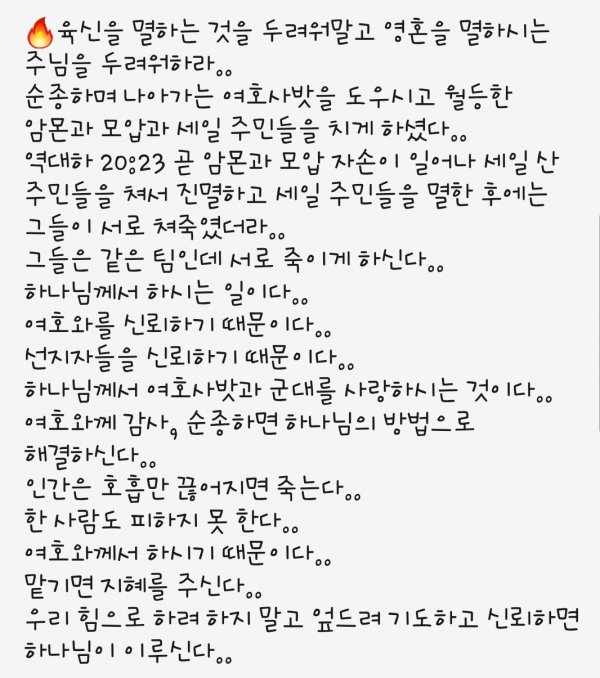 🔥육신을 멸하는 것을 두려워말고 영혼을 멸하시는
주님을 두려워하라。。
순종하며 나아가는 여호사밧을 도우시고 월등한
암몬과 모압과 세일 주민들을 치게 하셨다。。
역대하 20:23 곧 암몬과 모압 자손이 일어나 세일 산
주민들을 쳐서 진멸하고 세일 주민들을 멸한 후에는
그들이 서로 쳐죽였더라。。
그들은 같은 팀인데 서로 죽이게 하신다。。
하나님께서 하시는 일이다。。
여호와를 신뢰하기 때문이다。。
선지자들을 신뢰하기 때문이다。。
하나님께서 여호사밧과 군대를 사랑하시는 것이다。。
여호와께 감사, 순종하면 하나님의 방법으로
해결하신다。。
인간은 호흡만 끊어지면 죽는다。。
한 사람도 피하지 못 한다。。
여호와께서 하시기 때문이다。。
맡기면 지혜를 주신다。。
우리 힘으로 하려 하지 말고 엎드려 기도하고 신뢰하면
하나님이 이루신다。。